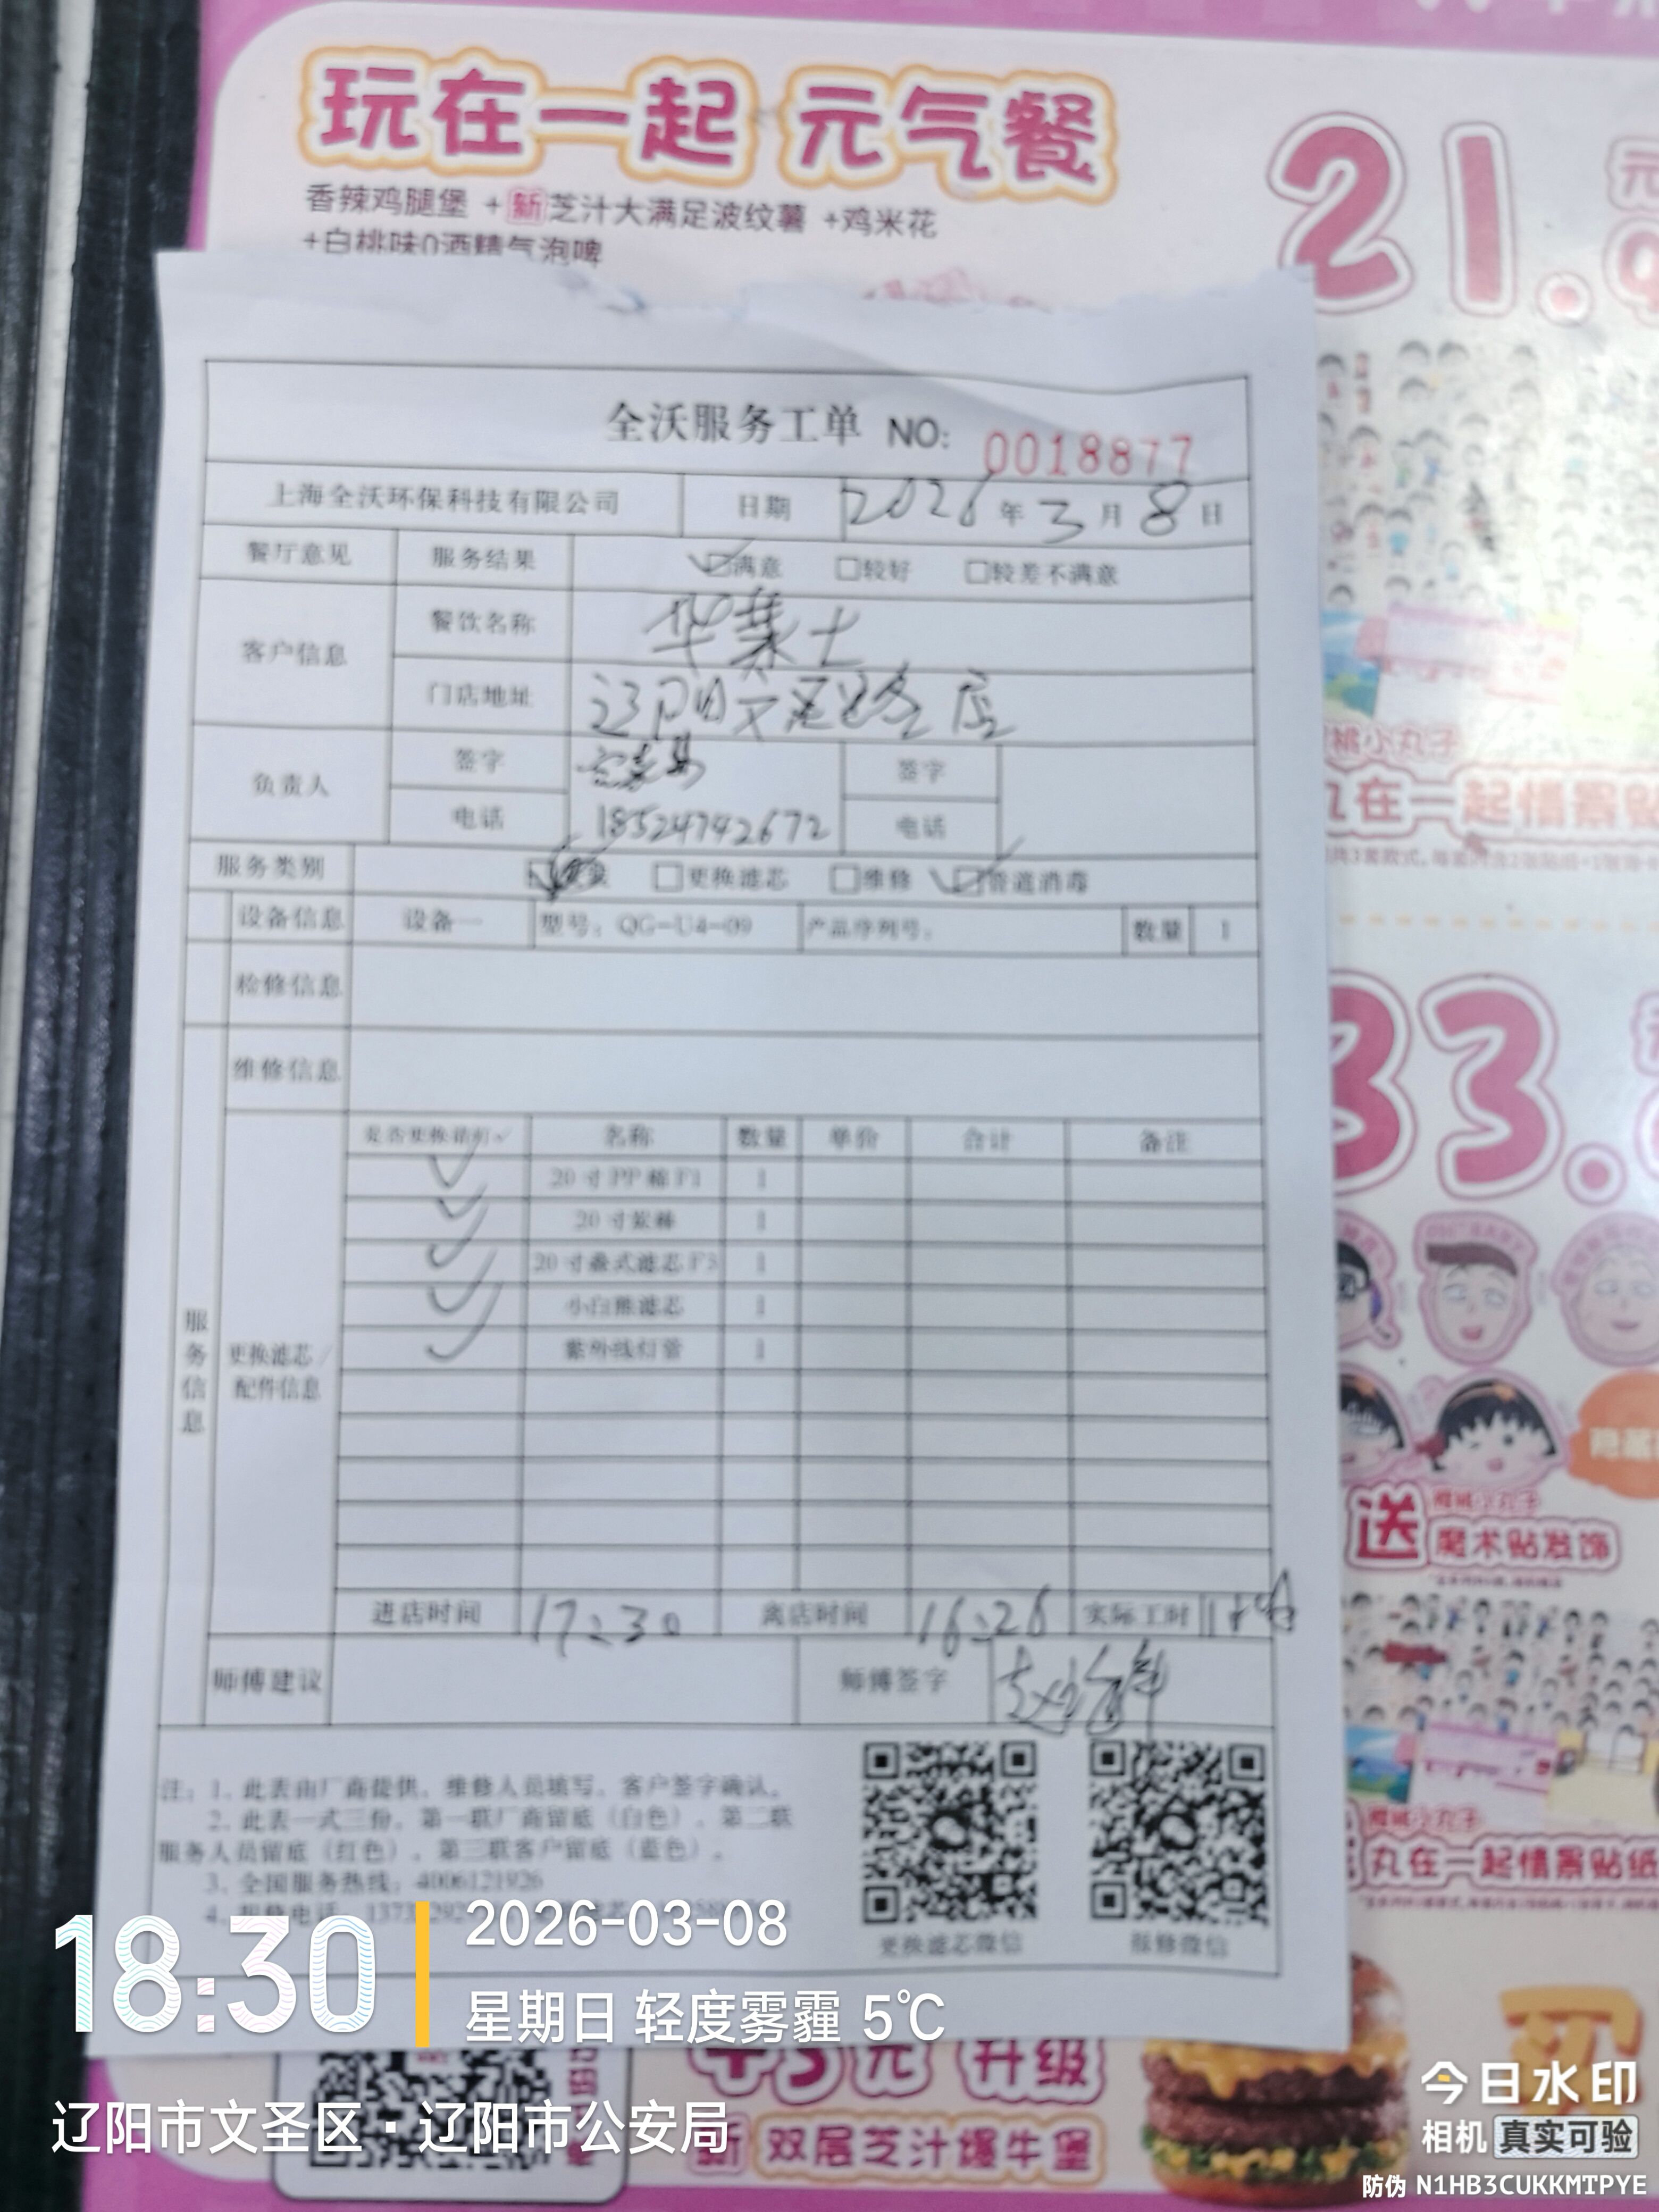 玩在一起 元气餐
21.
元
香辣鸡腿堡 +新芝汁大满足波纹薯 +鸡米花
+白桃味0酒精气泡啤
全沃服务工单 NO: 0018877
上海全沃环保科技有限公司 日期 2026年3月8日
餐厅意见 服务结果 ☑满意 □较好 □较差不满意
客户信息 餐饮名称 华莱士
门店地址 辽阳文圣路店
负责人 签字 签字
电话 18524742672 电话
服务类别 □更换滤芯 □维修 ☑管道消毒
设备信息 设备一 型号：QG-U4-09 产品序列号： 数量 1
检修信息
维修信息
是否更换请打✓ 名称 数量 单价 合计 备注
✓ 20寸PP棉F1 1
✓ 20寸炭棒 1
✓ 20寸叠式滤芯F3 1
✓ 小白熊滤芯 1
✓ 紫外线灯管 1
服务信息
更换滤芯/
配件信息
进店时间 17:30 离店时间 16:26 实际工时
师傅建议 师傅签字
注：1. 此表由厂商提供，维修人员填写，客户签字确认。
2. 此表一式三份，第一联厂商留底（白色），第二联
服务人员留底（红色），第三联客户留底（蓝色）。
3. 全国服务热线：4006121926
4. 报修电话：
更换滤芯微信 报修微信
桃小丸子
丸在一起情景贴
33.
隐藏
送
樱桃小丸子
魔术贴发饰
樱桃小丸子
丸在一起情景贴纸
18:30
2026-03-08
星期日 轻度雾霾 5℃
辽阳市文圣区·辽阳市公安局
+5元 升级
新 双层芝汁爆牛堡
买
今日水印
相机 真实可验
防伪 N1HB3CUKKMTPYE